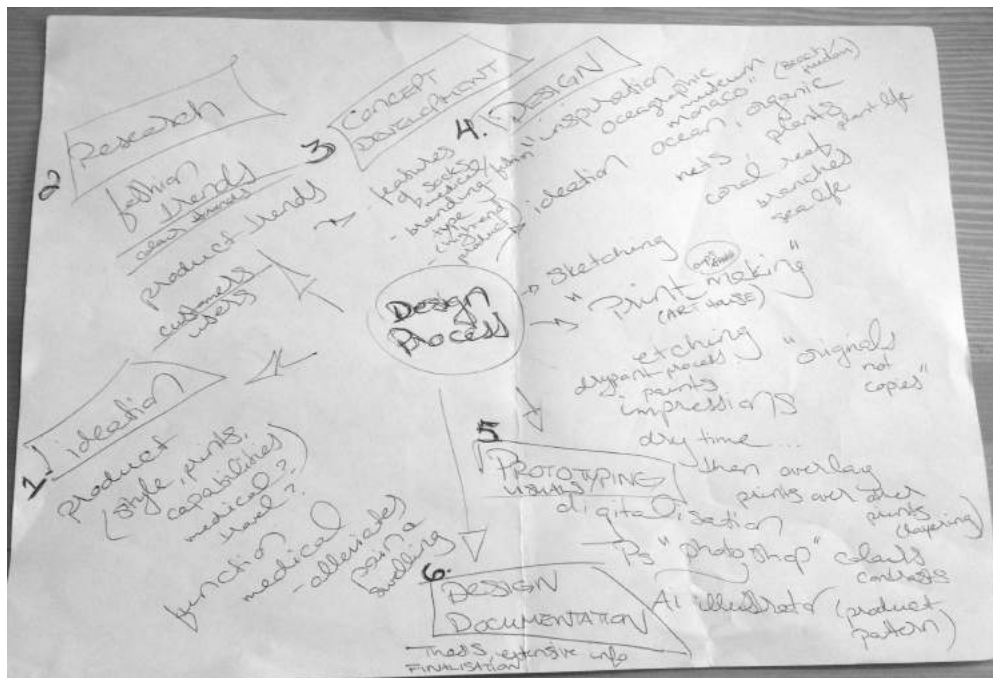 Design
Process
1. ideation
product
(style, prints,
capabilities
medical?
travel?)
function
medical
- alleviates
pain &
swelling
2 Research
fashion
trends
colour trends
product trends
customers
users
3 CONCEPT
DEVELOPMENT
- features
of socks
medical/
fashion
- branding
type
- (high end
product)
4. DESIGN
"inspiration
oceagraphic
museum
monaco"
ocean, organic
nets, plants
coral reef
plant life
branches
sealife
ideation
- sketching
"Print making"
(ART HOUSE)
etching
drypoint process
prints
impressions
"originals
not
copies"
dry time...
then overlay
prints over other
prints
(layering)
5
PROTOTYPING
VISUALS
digitalisation
Ps "photoshop" colours
contrasts
Ai illustrator (product
pattern)
6.
DESIGN
DOCUMENTATION
Thesis, extensive info
FINALISATION